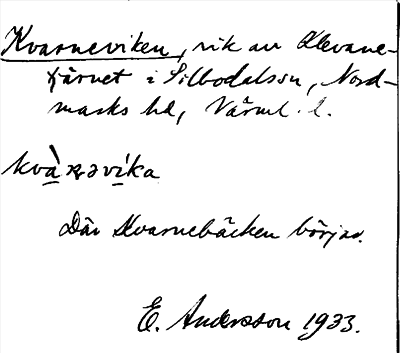 Kvarneviken, vik av Klevane-
tjärnet i Silbodals sn, Nord-
marks hd, Värml. l.
kvàɳəvíka
Där Kvarnebäcken börjar.
E. Andersson 1933.